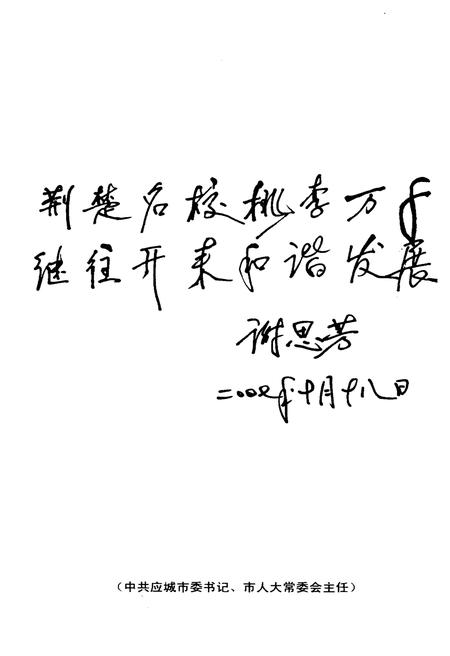 荆楚名校桃李万千
继往开来和谐发展
谢思芳
二〇〇七年十月十八日
（中共应城市委书记、市人大常委会主任）